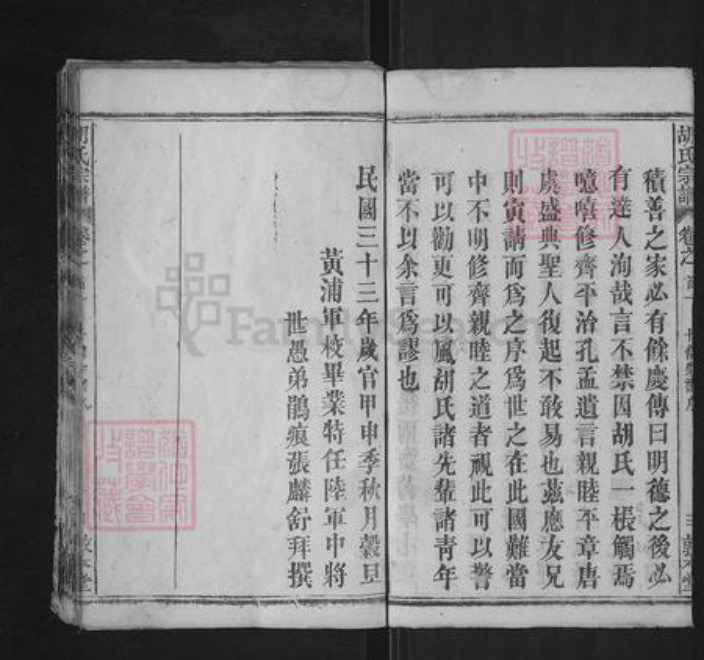 胡氏宗譜
積善之家必有餘慶傳曰明德之後必
有達人洵哉言不禁因胡氏一棖觸焉
噫嘻修齊平治孔孟遺言親睦平章唐
虞盛典聖人復起不敢易也茲應友兄
則寅請而爲之序爲世之在此國難當
中不明修齊親睦之道者視此可以警
可以勸更可以風胡氏諸先輩諸青年
當不以余言爲謬也
民國三十三年歲官甲申季秋月穀旦
黃浦軍校畢業特任陸軍中將
世愚弟鵲痕張麟舒拜撰